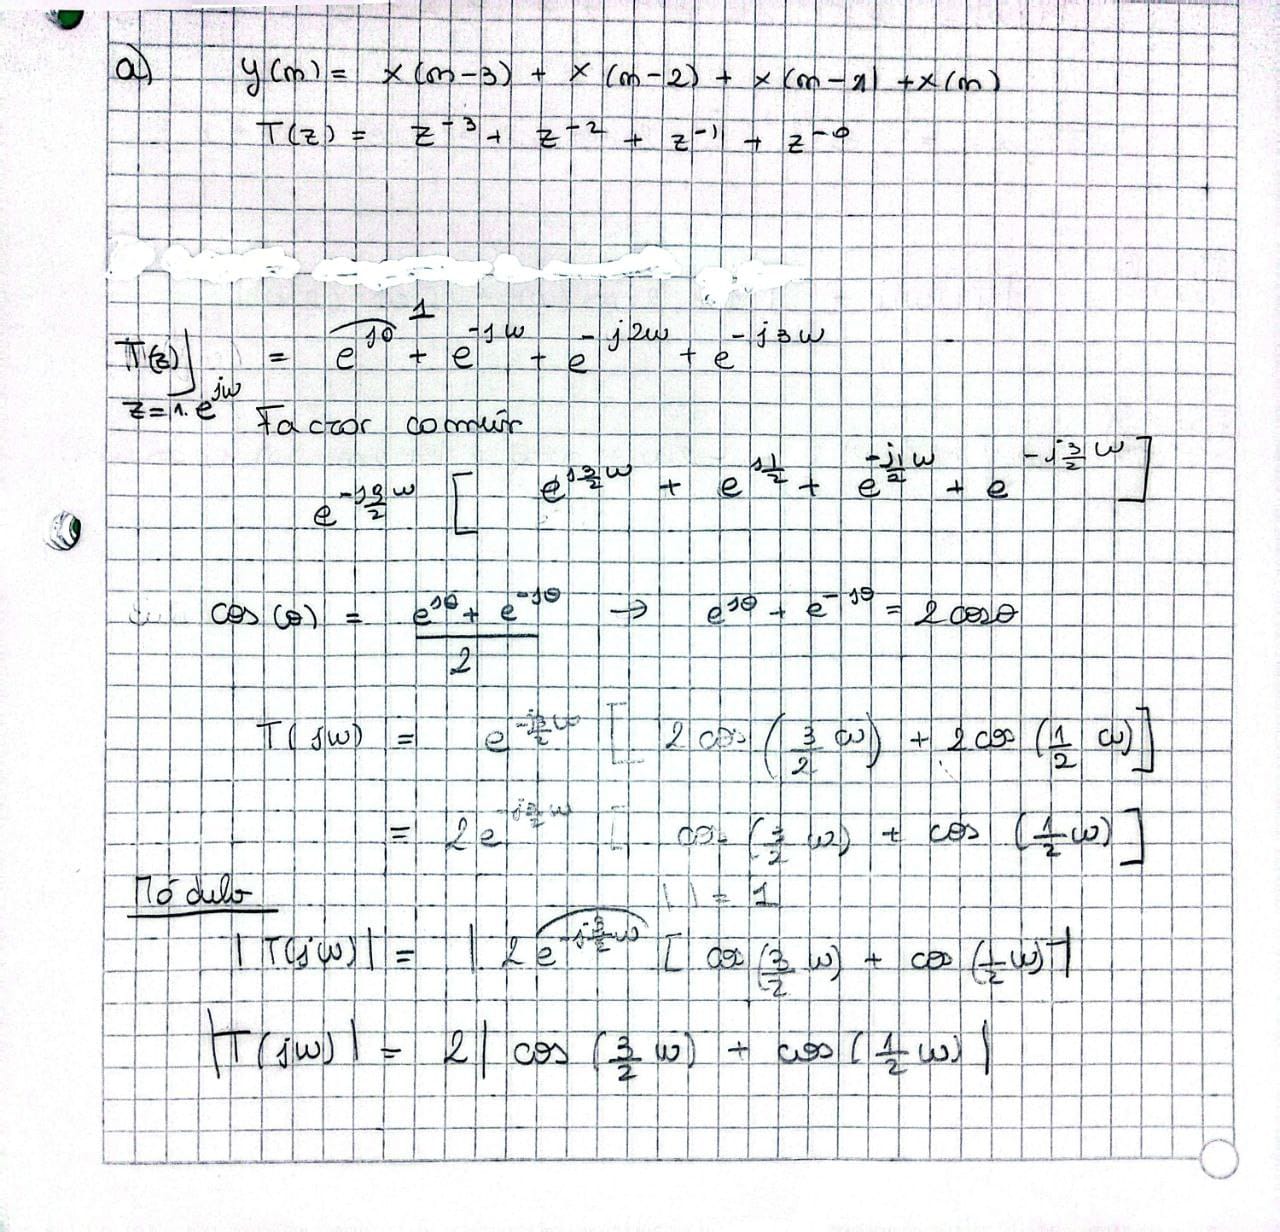 a) y(n) = x(n-3) + x(n-2) + x(n-1) + x(n)
T(z) = z^-3 + z^-2 + z^-1 + z^-0
1
T(z)| z=1.e^jω = e^j0 + e^-jω + e^-j2ω + e^-j3ω
Factor común
e^-j3/2ω [ e^j3/2ω + e^j1/2 + e^-j1/2ω + e^-j3/2ω ]
cos(θ) = (e^jθ + e^-jθ)/2 → e^jθ + e^-jθ = 2cosθ
T(jω) = e^-j3/2ω [ 2cos(3/2 ω) + 2cos(1/2 ω) ]
= 2e^-j3/2ω [ cos(3/2 ω) + cos(1/2 ω) ]
Módulo
| | = 1
|T(jω)| = | 2e^-j3/2ω [ cos(3/2 ω) + cos(1/2 ω) ] |
|T(jω)| = 2| cos(3/2 ω) + cos(1/2 ω) |